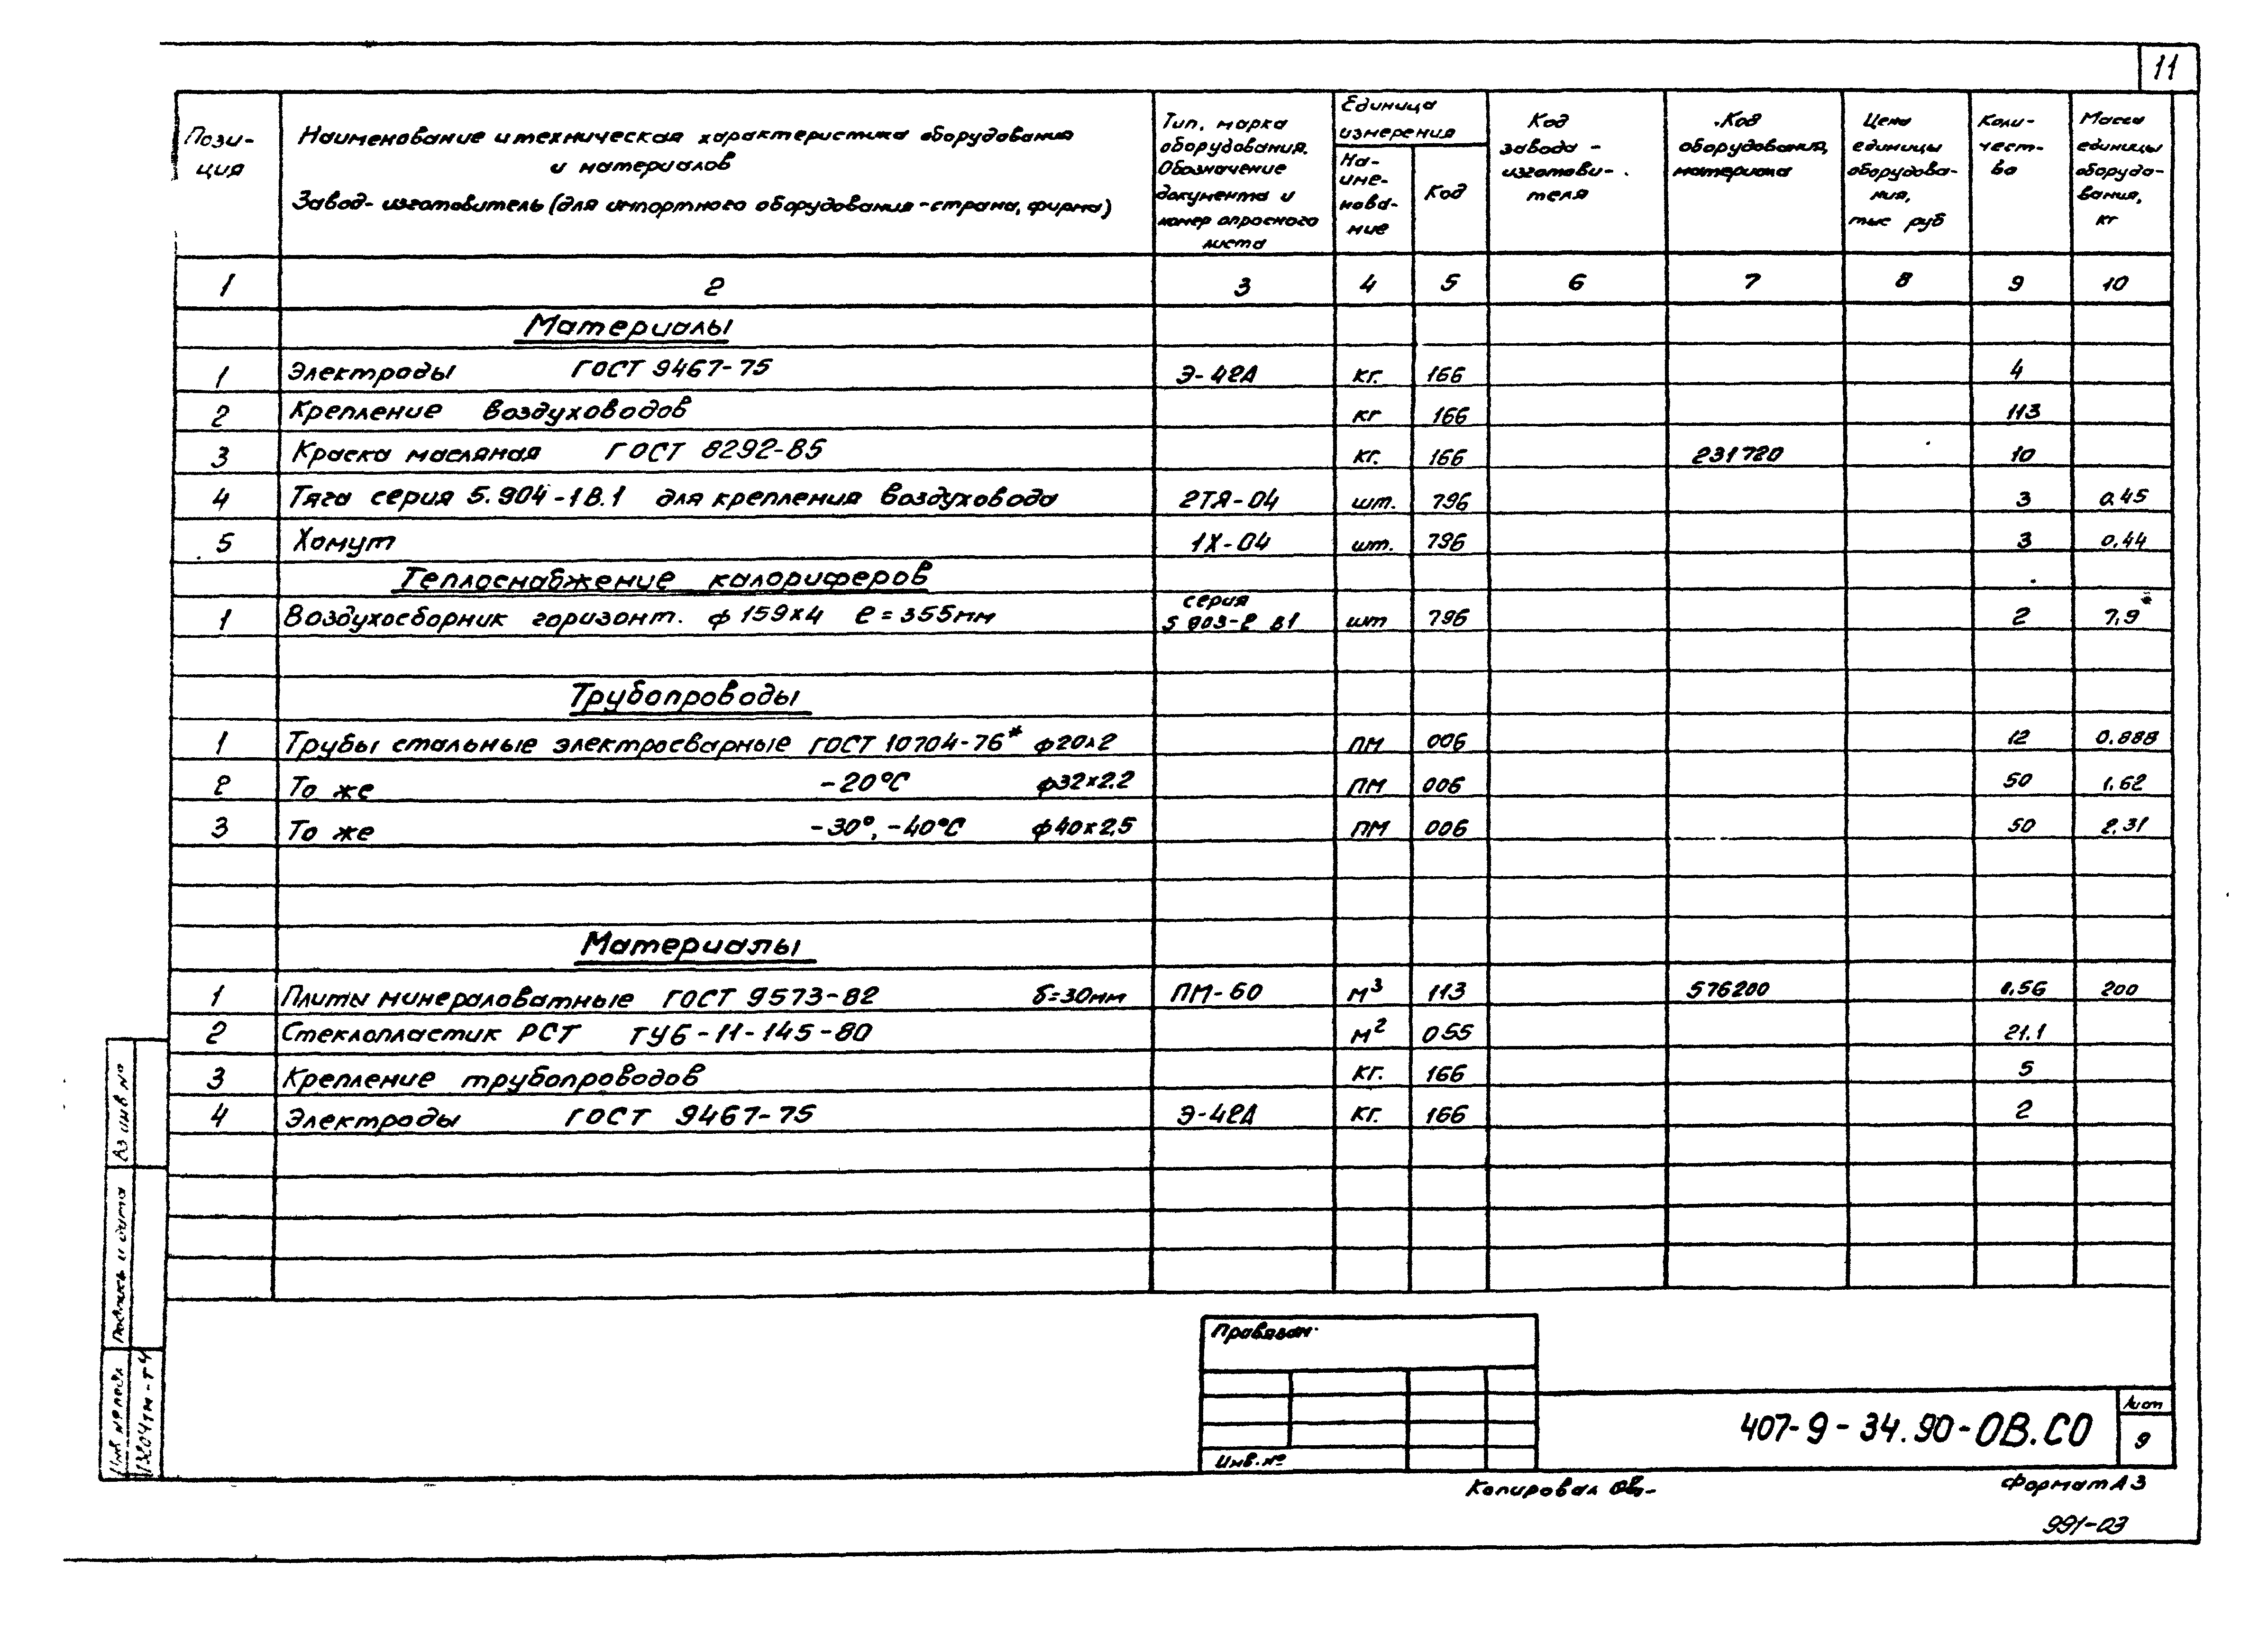 11
Пози-
ция
Наименование и техническая характеристика оборудования
и материалов
Завод-изготовитель (для импортного оборудования - страна, фирма)
Тип, марка
оборудования.
Обозначение
документа и
номер опросного
листа
Единица
измерения
На-
име-
нова-
ние
Код
Код
завода -
изготови-
теля
Код
оборудования,
материала
Цена
единицы
оборудова-
ния,
тыс руб
Коли-
чест-
во
Масса
единицы
оборудо-
вания,
кг
1 2 3 4 5 6 7 8 9 10
Материалы
1 Электроды ГОСТ 9467-75 Э-42А кг. 166 4
2 Крепление воздуховодов кг 166 113
3 Краска масляная ГОСТ 8292-85 кг. 166 231720 10
4 Тяга серия 5.904-1В.1 для крепления воздуховода 2ТЯ-04 шт. 796 3 0.45
5 Хомут 1Х-04 шт. 796 3 0.44
Теплоснабжение калориферов
серия
1 Воздухосборник горизонт. ф 159х4 е=355мм 5 903-2 в1 шт 796 2 7,9*
Трубопроводы
1 Трубы стальные электросварные ГОСТ 10704-76* ф20х2 пм 006 12 0.888
2 То же -20°С ф32х2.2 пм 006 50 1.62
3 То же -30°, -40°С ф40х2,5 пм 006 50 2.31
Материалы
1 Плиты минераловатные ГОСТ 9573-82 δ=30мм ПМ-60 м³ 113 576200 0.56 200
2 Стеклопластик РСТ ТУ6-11-145-80 м² 055 21.1
3 Крепление трубопроводов кг. 166 5
4 Электроды ГОСТ 9467-75 Э-42А кг. 166 2
Вз инв №
Подпись и дата
Инв. № подл
13204тм-т4
Привязан
Инв. №
407-9-34.90-ОВ.СО
Лист
9
Копировал
Формат А3
991-03